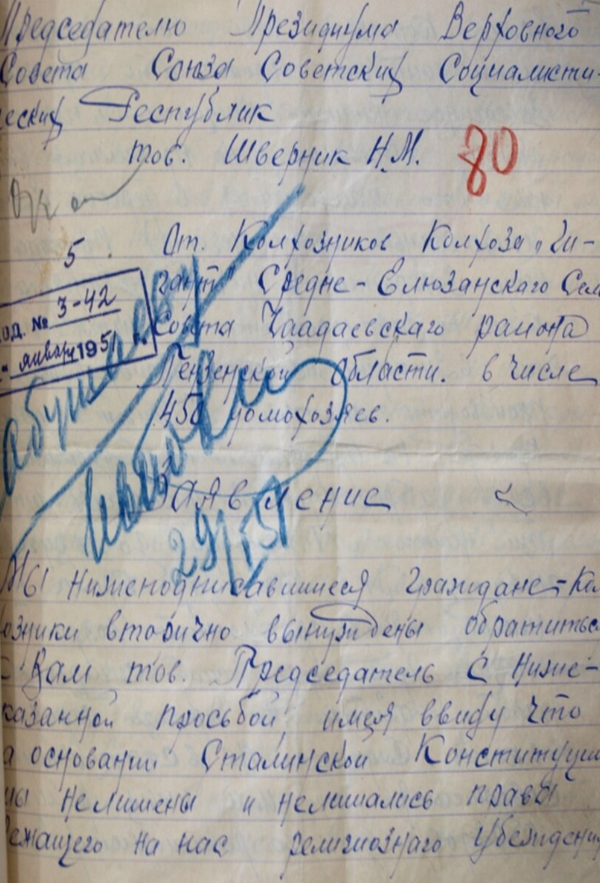 Председателю Президиума Верховного
Совета Союза Советских Социалисти-
ческих Республик
тов. Шверник Н.М. 80
5
От. Колхозников Колхоза "Ги-
гант" Средне-Елюзанскаго Сель
од. № 3-42
Совета Чаадаевскаго района
январь 1951
Пензенской области. в числе
450 домохозяев.
Заявление
29/I 51
Мы нижеподписавшиеся граждане-кол
озники вторично вынуждены обратиться
к Вам тов. Председатель с ниже-
казанной просьбой, имея ввиду что
а основании Сталинской Конституции
мы нелишены и нелишались права
лежащего на нас религиознаго убеждения